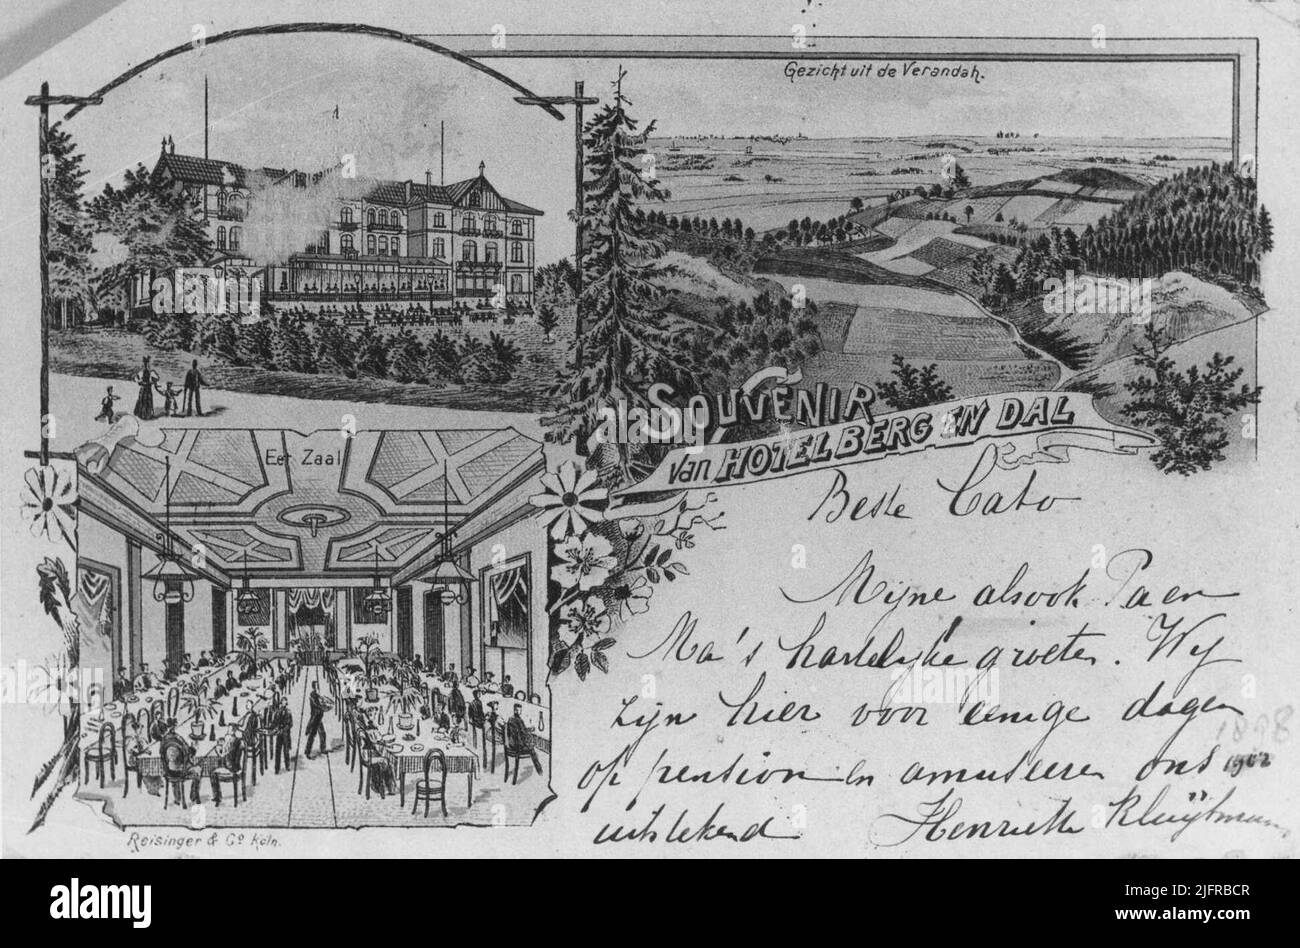 Gezicht uit de Verandah.
Eet Zaal
SOUVENIR
van HOTEL BERG EN DAL
Beste Cato
Mijne alsook Pa en
Ma's hartelijke groeten. Wij
zijn hier voor eenige dagen
op pension en amuseeren ons
uitstekend Henriette
1898
1902
Reisinger & Co Köln.
alamy
Image ID: 2JFRBCR
www.alamy.com